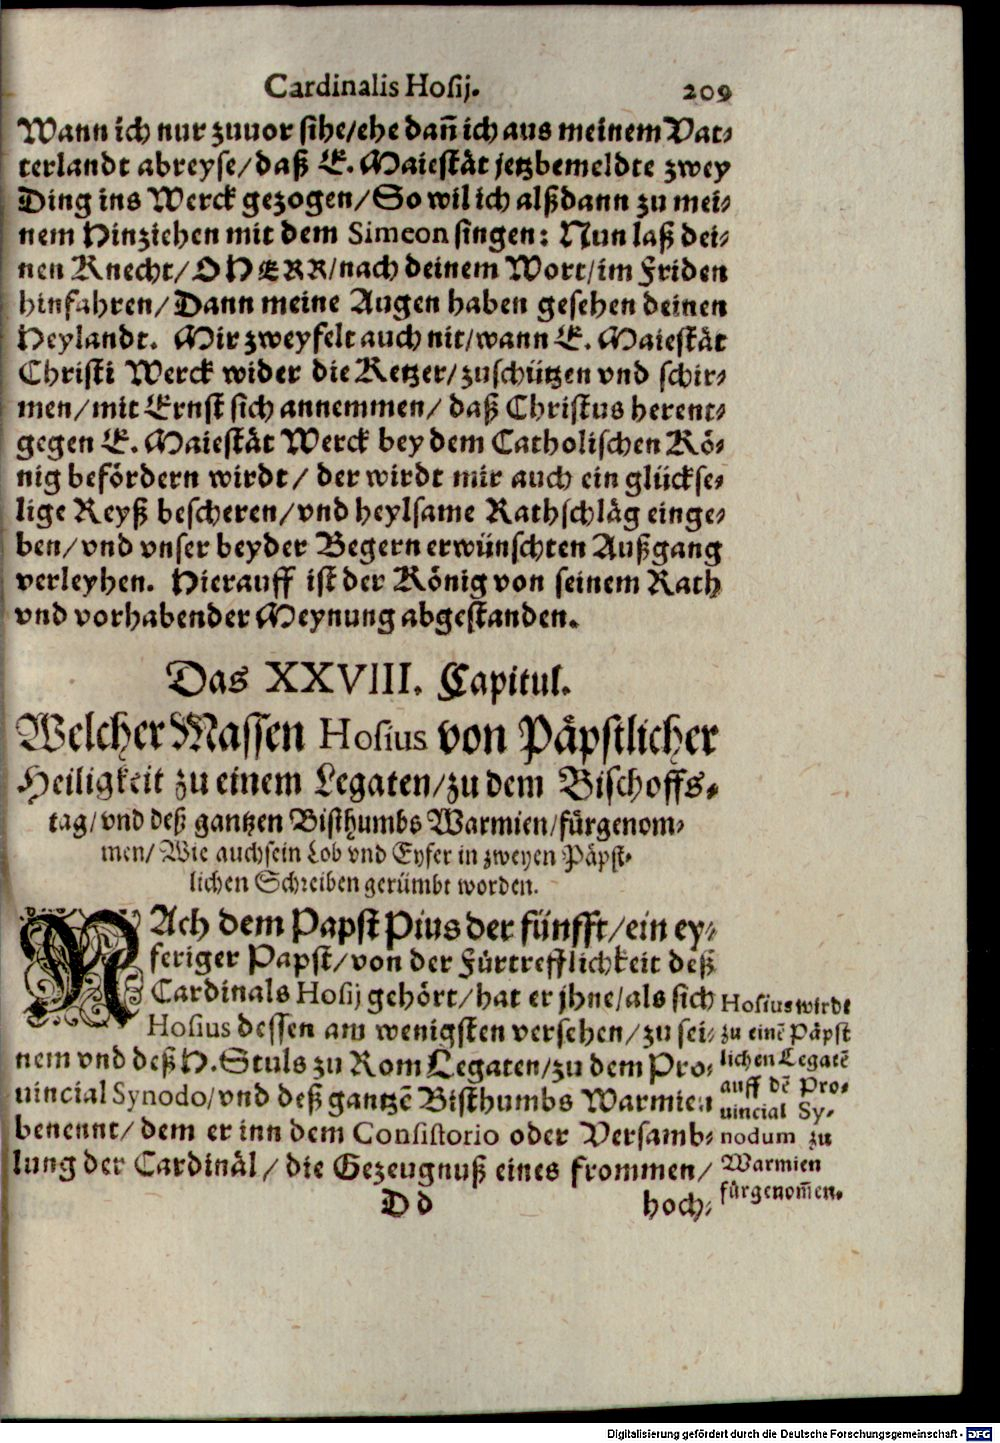 Cardinalis Hosij. 209
Wann ich nur zuuor sihe/ehe dañ ich aus meinem Vat-
terlandt abreyse/daß E. Maiestät jetzbemeldte zwey
Ding ins Werck gezogen/So wil ich alßdann zu mei-
nem Hinziehen mit dem Simeon singen: Nun laß dei-
nen Knecht/O HERR/nach deinem Wort/im Friden
hinfahren/Dann meine Augen haben gesehen deinen
Heylandt. Mir zweyfelt auch nit/wann E. Maiestät
Christi Werck wider die Ketzer/zuschützen vnd schir-
men/mit Ernst sich annemmen/daß Christus herent-
gegen E. Maiestät Werck bey dem Catholischen Kö-
nig befördern wirdt/ der wirdt mir auch ein glückse-
lige Reyß bescheren/vnd heylsame Rathschläg einge-
ben/vnd vnser beyder Begern erwünschten Außgang
verleyhen. Hierauff ist der König von seinem Rath
vnd vorhabender Meynung abgestanden.
Das XXVIII. Capitul.
Welcher Massen Hosius von Päpstlicher
Heiligkeit zu einem Legaten/zu dem Bischoffs-
tag/vnd deß gantzen Bisthumbs Warmien/fürgenom-
men/ Wie auch sein Lob vnd Eyfer in zweyen Päpst-
lichen Schreiben gerümbt worden.
NAch dem Papst Pius der fünfft/ein ey-
feriger Papst/von der Fürtrefflichkeit deß
Cardinals Hosij gehört/hat er jhne/als sich
Hosius dessen am wenigsten versehen/zu sei-
nem vnd deß H. Stuls zu Rom Legaten/zu dem Pro-
uincial Synodo/vnd deß gantzē Bisthumbs Warmien
benennt/dem er inn dem Consistorio oder Versamb-
lung der Cardinäl/die Gezeugnuß eines frommen/
Hosius wirdt
zu einē Päpst
lichen Legatē
auff dē Pro-
uincial Sy-
nodum zu
Warmien
fürgenom̄en.
D d hoch-
Digitalisierung gefördert durch die Deutsche Forschungsgemeinschaft - DFG